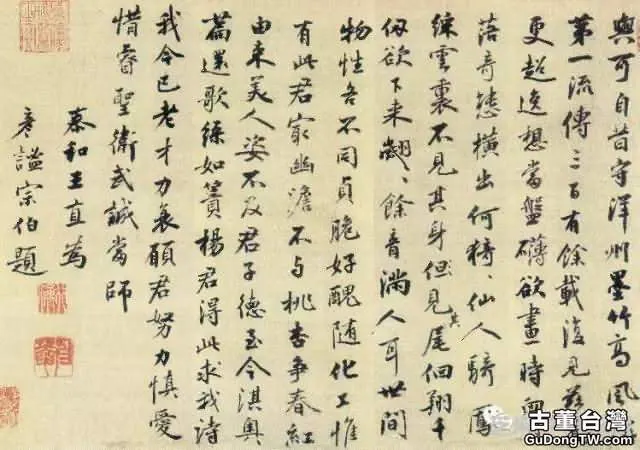 與可自昔守洋州墨竹高風
第一流傳三百有餘載復見
更超逸想當盤礴欲畫時胷
落奇態橫出何猗〻仙人騎鳳
綵雲裏不見其身但見其尾佪翔千
仞欲下来翽〻餘音滿人耳世間
物性各不同貞脆好醜随化工惟
有此君㝡幽澹不与桃杏争春紅
由来美人姿不及君子德至今淇奥
篇還歌綠如簀楊君得此求我詩
我今已老才力衰願君努力慎愛
惜睿聖衛武誠當師
泰和王直為
彥謐宗伯題
古董台灣
GuDongTW.com